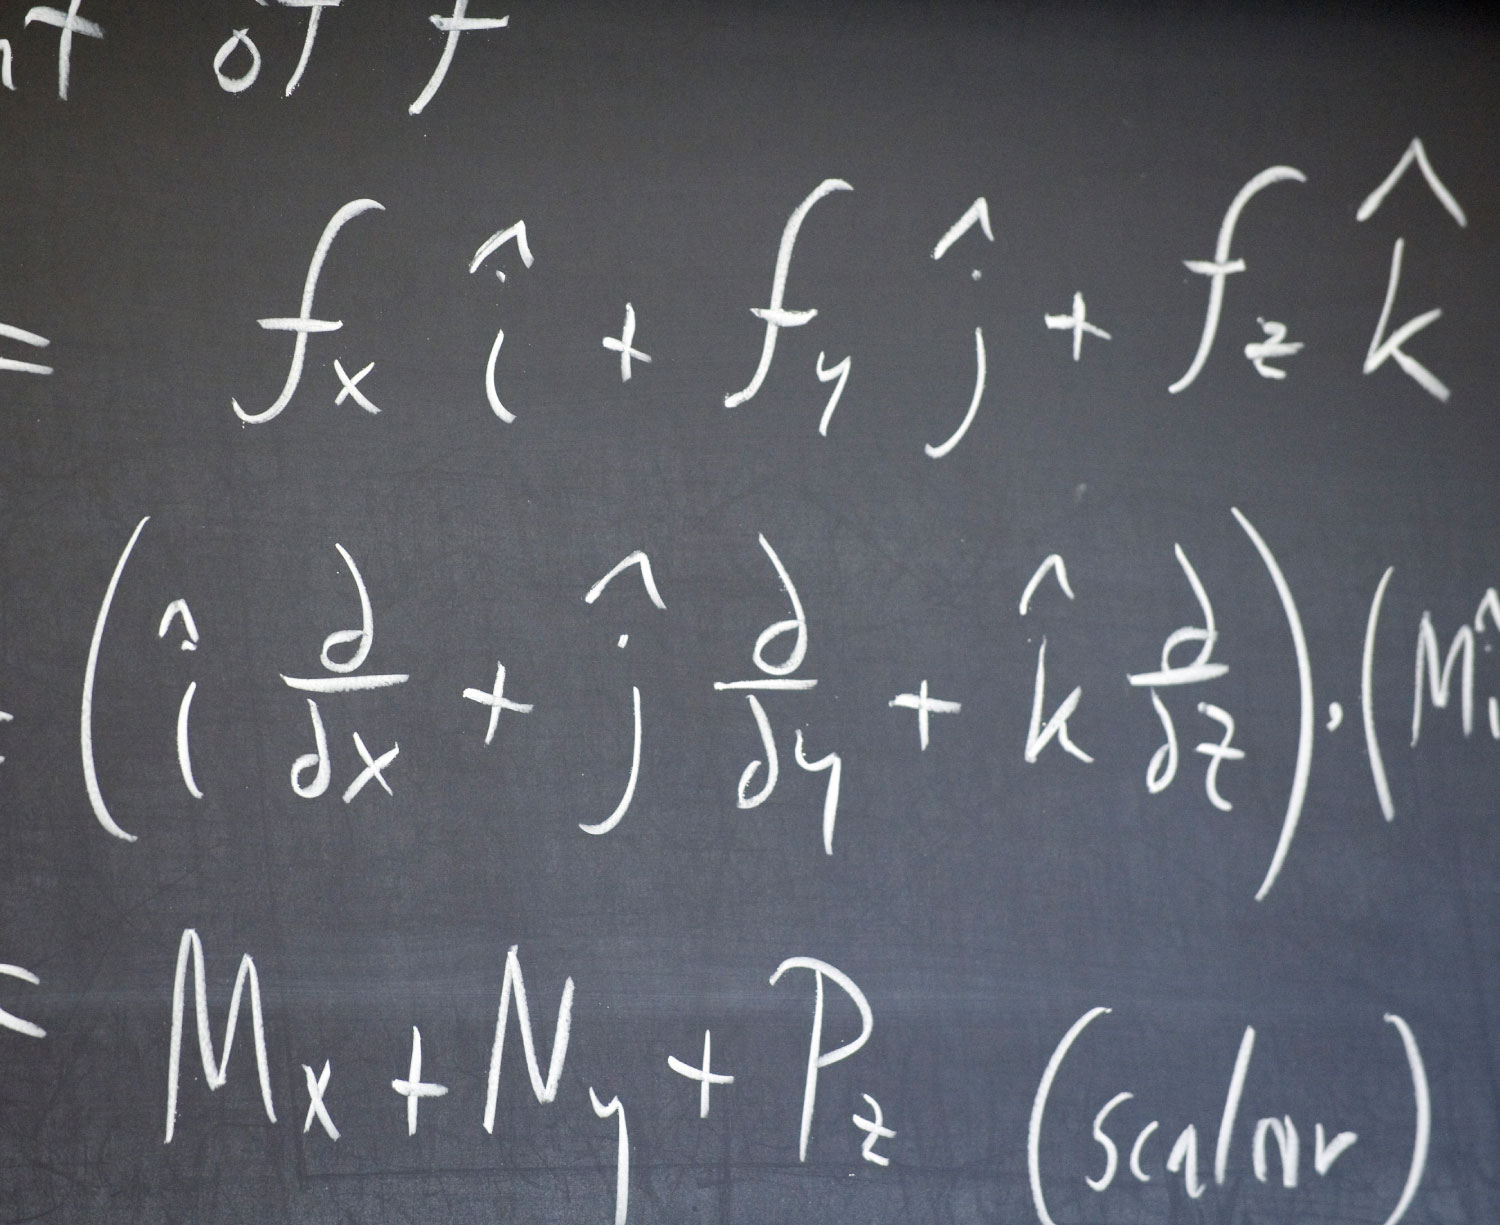 nt of f
= fₓ î + f_y ĵ + f_z k̂
= (î ∂/∂x + ĵ ∂/∂y + k̂ ∂/∂z) · (Mî
= Mₓ + N_y + P_z (scalar)